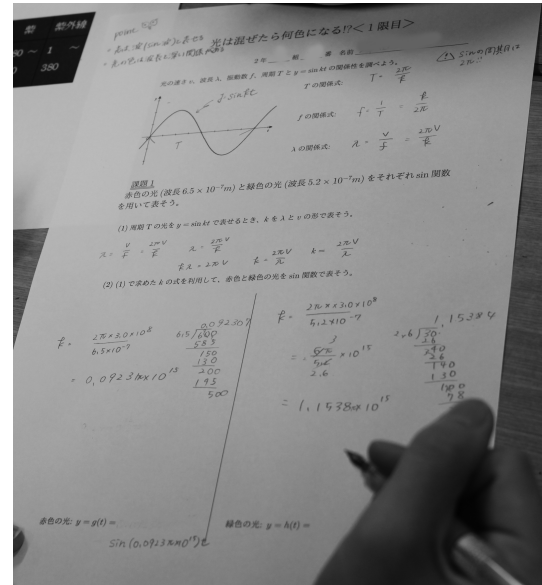 紫 紫外線
80 ~ 1 ~
0 380
point
光は混ぜたら何色になる!?<1限目>
2年 組 番 名前
光の速さ v, 波長 λ, 振動数 f, 周期 T と y = sin kt の関係性を調べよう。
sinの周期は 2π!!
T の関係式: T = 2π/k
y = sin kt
T
f の関係式: f = 1/T = k/2π
λ の関係式: λ = v/f = 2πv/k
課題 1
赤色の光 (波長 6.5 × 10⁻⁷m) と緑色の光 (波長 5.2 × 10⁻⁷m) をそれぞれ sin 関数
を用いて表そう。
(1) 周期 T の光を y = sin kt で表せるとき, k を λ と v の形で表そう。
λ = v/f = 2πv/k λ = 2πv/k
kλ = 2πv k = 2πv/λ k = 2πv/λ
(2) (1) で求めた k の式を利用して, 赤色と緑色の光を sin 関数で表そう。
k = 2π × 3.0×10⁸ / 6.5×10⁻⁷
= 0.0923π×10¹⁵
0.092307
6.5)600
585
150
130
200
195
500
k = 2π × 3.0×10⁸ / 5.2×10⁻⁷
3
2.6
×10¹⁵
= 1.1538π×10¹⁵
1.15384
2.6)30
26
140
130
100
78
赤色の光: y = g(t) =
sin(0.0923π×10¹⁵)t
緑色の光: y = h(t) =